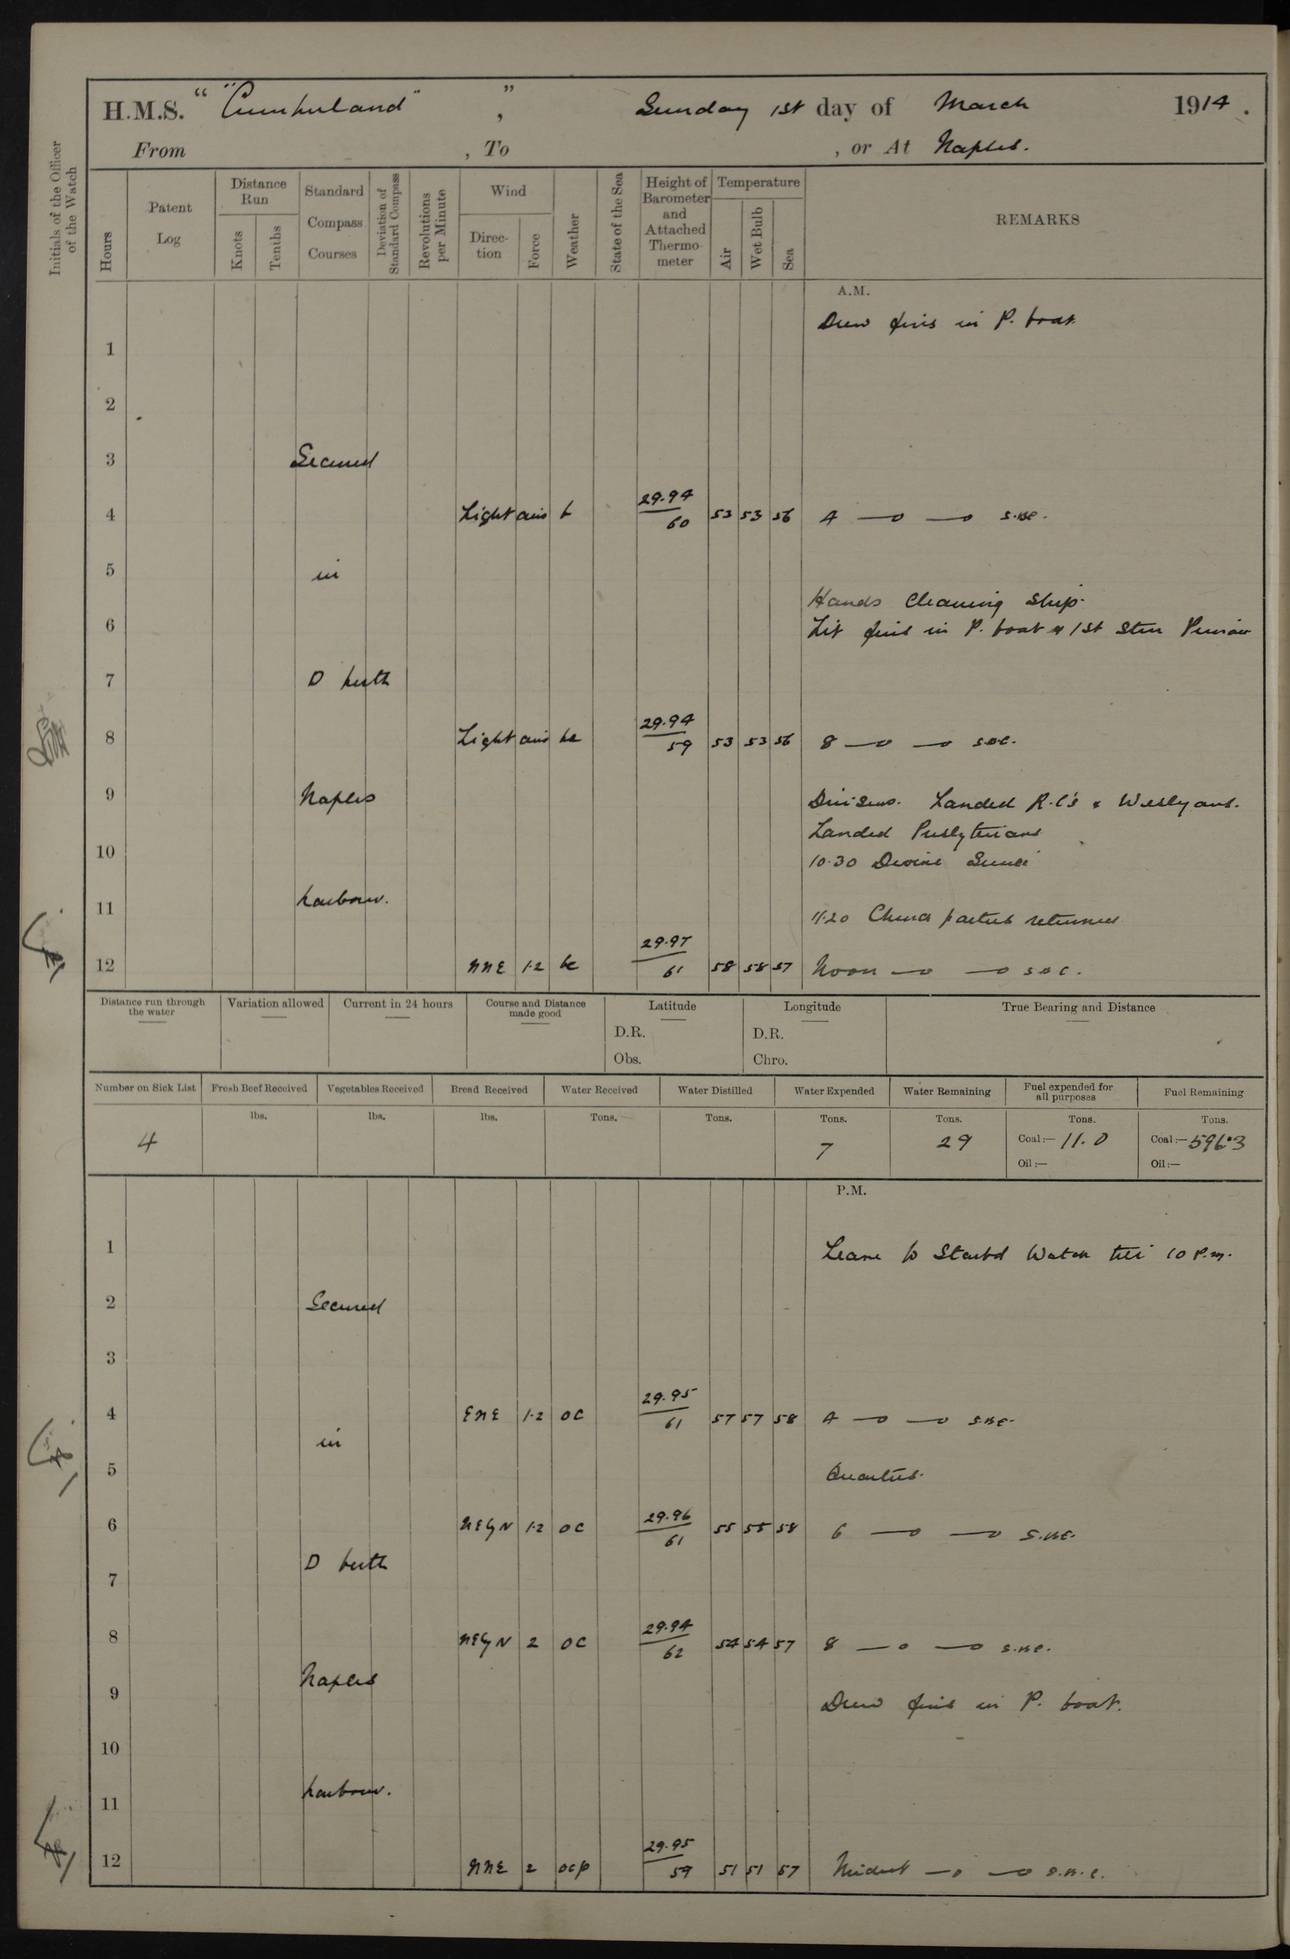 H.M.S. "Cumberland", Sunday 1st day of March 1914.
From , To , or At Naples.
Initials of the Officer of the Watch
Hours
Patent Log
Distance Run
Knots
Tenths
Standard Compass Courses
Deviation of Standard Compass
Revolutions per Minute
Wind
Direction
Force
Weather
State of the Sea
Height of Barometer and Attached Thermometer
Temperature
Air
Wet Bulb
Sea
REMARKS
A.M.
Drew fires in P. boat
1
2
3 Secured
4 Light airs b 29.94 / 60 53 53 56 4 —o —o
5 in
Hands cleaning ship.
6 Lit fires in P. boat & 1st Stm Pinnace
7 D berth
8 Light airs bc 29.94 / 59 53 53 56 8 —o —o
9 Naples Divisions. Landed R.C's & Weslyans.
Landed Presbyterians
10 10.30 Divine Service
11 harbour. 11.20 Church parties returned
12 NNE 1.2 bc 29.97 / 61 58 58 57 Noon —o —o
Distance run through the water
Variation allowed
Current in 24 hours
Course and Distance made good
Latitude
D.R.
Obs.
Longitude
D.R.
Chro.
True Bearing and Distance
Number on Sick List Fresh Beef Received Vegetables Received Bread Received Water Received Water Distilled Water Expended Water Remaining Fuel expended for all purposes Fuel Remaining
lbs. lbs. lbs. Tons. Tons. Tons. Tons. Tons. Tons.
4 7 29 Coal:— 11.0 Coal:— 596.3
Oil:— Oil:—
P.M.
1 Leave to Starbd Watch till 10 P.m.
2 Secured
3
4 ENE 1.2 oc 29.95 / 61 57 57 58 4 —o —o
in
5 Quarters.
6 NEbyN 1.2 oc 29.96 / 61 55 55 58 6 —o —o
D berth
7
8 NEbyN 2 oc 29.94 / 62 54 54 57 8 —o —o
Naples
9 Drew fires in P. boat.
10
harbour.
11
12 NNE 2 ocp 29.95 / 59 51 51 57 Midnt —o —o